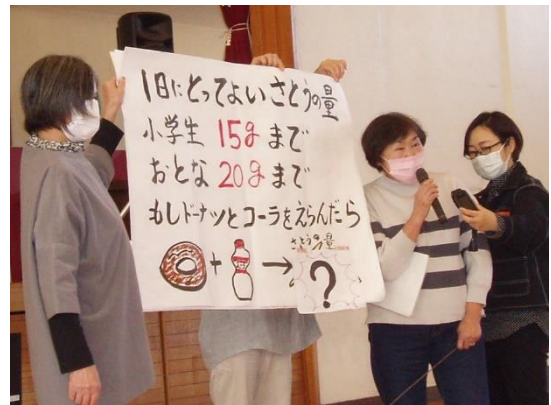 1日にとってよいさとうの量
小学生 15gまで
おとな 20gまで
もしドーナツとコーラをえらんだら
さとうの量
+ → ?